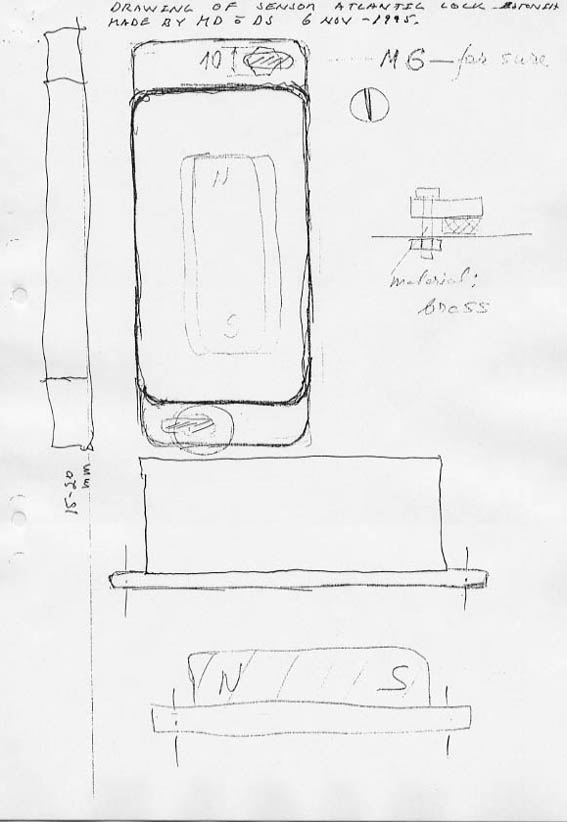 DRAWING OF SENSOR ATLANTIC LOCK - ESTONIA
MADE BY MD & DS 6 NOV - 1995.
10
M6 - for sure
N
S
material:
brass
15-20
mm
N S